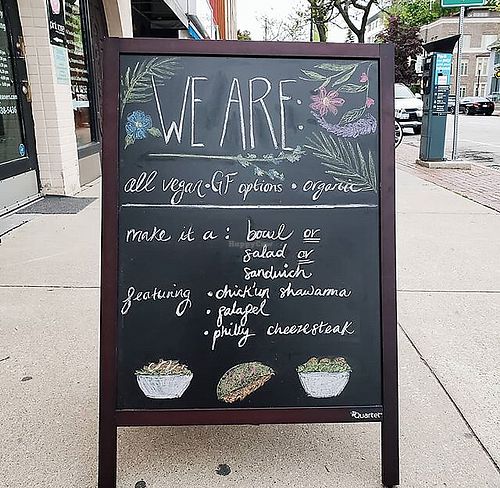 WE ARE:
all vegan • GF options • organic
make it a : bowl or
salad or
sandwich
featuring • chick'un shawarma
• falafel
• philly cheezesteak
Quartet
HappyCow